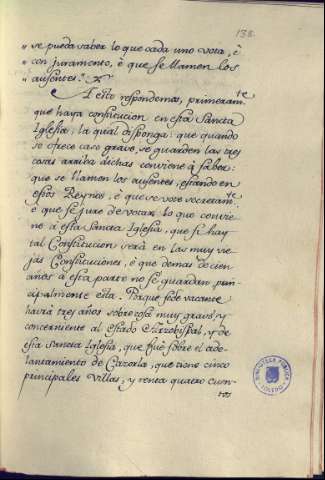 138.
" se pueda saber lo que cada uno vota, è
" con juramento, è que se llamen los
" ausentes?
A esto respondemos, primeramte
que haya constitucion en esta Sancta
Iglesia, la qual disponga: que quando
se ofrece caso grave, se guarden las tres
cosas arriba dichas conviene à saber:
que se llamen los ausentes, estando en
estos Reynos, è que se vote secretamte
è que se jure de votar lo que convie-
ne à esta Sancta Iglesia, que si hay
tal Constitucion será en las muy vie-
jas Constituciones, è que demas de cien
años à esta parte no se guardan prin-
cipalmente esta. Porque sede vacante
havrá tres años sobre cosa muy grave, y
concerniente al Estado Arzobispal, y de
esta Sancta Iglesia, que fuè sobre el ade-
lantamiento de Cazorla, que tiene cinco
principales Villas, y renta quatro cuen-
tos
BIBLIOTECA PUBLICA
TOLEDO